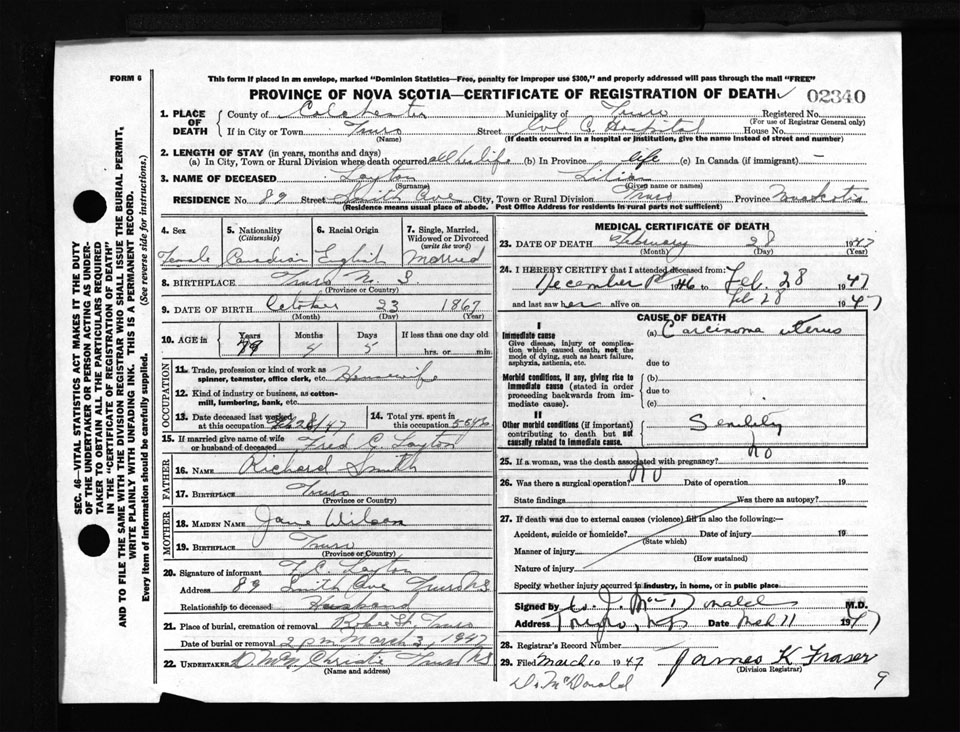 FORM 6
This form if placed in an envelope, marked "Dominion Statistics—Free, penalty for improper use $300," and properly addressed will pass through the mail "FREE"
PROVINCE OF NOVA SCOTIA—CERTIFICATE OF REGISTRATION OF DEATH
02340
1. PLACE OF DEATH
County of Colchester Municipality of Truro Registered No.
(For use of Registrar General only)
If in City or Town Truro Street Col Co Hospital House No.
(Name) (If death occurred in a hospital or institution, give the name instead of street and number)
2. LENGTH OF STAY (in years, months and days)
(a) In City, Town or Rural Division where death occurred all her life (b) In Province life (c) In Canada (if immigrant) —
3. NAME OF DECEASED Layton Lilian
(Surname) (Given name or names)
RESIDENCE No. 89 Street Smith Ave City, Town or Rural Division Truro Province Nova Scotia
(Residence means usual place of abode. Post Office Address for residents in rural parts not sufficient)
4. Sex 5. Nationality (Citizenship) 6. Racial Origin 7. Single, Married, Widowed or Divorced (write the word)
Female Canadian English Married
8. BIRTHPLACE Truro N. S.
(Province or Country)
9. DATE OF BIRTH October 23 1867
(Month) (Day) (Year)
10. AGE in Years Months Days If less than one day old
79 4 5 hrs. or min.
OCCUPATION
11. Trade, profession or kind of work as spinner, teamster, office clerk, etc. Housewife
12. Kind of industry or business, as cotton-mill, lumbering, bank, etc.
13. Date deceased last worked at this occupation Feb 28/47
14. Total yrs. spent in this occupation
15. If married give name of wife or husband of deceased Fred C. Layton
FATHER
16. NAME Richard Smith
17. BIRTHPLACE Truro
(Province or Country)
MOTHER
18. MAIDEN NAME Jane Wilson
19. BIRTHPLACE Truro
(Province or Country)
20. Signature of informant F C Layton
Address 89 Smith Ave Truro NS
Relationship to deceased Husband
21. Place of burial, cremation or removal Robie St. Truro
Date of burial or removal 2 pm March 3, 1947
22. UNDERTAKER D. McN Christie Truro NS
(Name and address)
MEDICAL CERTIFICATE OF DEATH
23. DATE OF DEATH February 28 1947
(Month) (Day) (Year)
24. I HEREBY CERTIFY that I attended deceased from:
December 1946 to Feb. 28 1947
and last saw her alive on Feb 28 1947
CAUSE OF DEATH
I
Immediate cause (a) Carcinoma uterus
Give disease, injury or complication which caused death, not the mode of dying, such as heart failure, asphyxia, asthenia, etc.
due to
Morbid conditions, if any, giving rise to immediate cause (stated in order proceeding backwards from immediate cause).
(b)
due to
(c)
II
Other morbid conditions (if important) contributing to death but not causally related to immediate cause. Senility
25. If a woman, was the death associated with pregnancy? No
26. Was there a surgical operation? No Date of operation 19
State findings Was there an autopsy?
27. If death was due to external causes (violence) fill in also the following:—
Accident, suicide or homicide? Date of injury 19
(State which)
Manner of injury
(How sustained)
Nature of injury
Specify whether injury occurred in industry, in home, or in public place
Signed by J. MacDonald M.D.
Address Truro, NS Date Mch 11 1947
28. Registrar's Record Number
29. Filed March 10 1947 James K Fraser
(Division Registrar)
Dr McDonald
9
SEC. 46—VITAL STATISTICS ACT MAKES IT THE DUTY
OF THE UNDERTAKER OR PERSON ACTING AS UNDER-
TAKER TO OBTAIN ALL THE PARTICULARS REQUIRED
IN THE "CERTIFICATE OF REGISTRATION OF DEATH"
AND TO FILE THE SAME WITH THE DIVISION REGISTRAR WHO SHALL ISSUE THE BURIAL PERMIT,
WRITE PLAINLY WITH UNFADING INK. THIS IS A PERMANENT RECORD.
Every item of information should be carefully supplied. (See reverse side for instructions.)